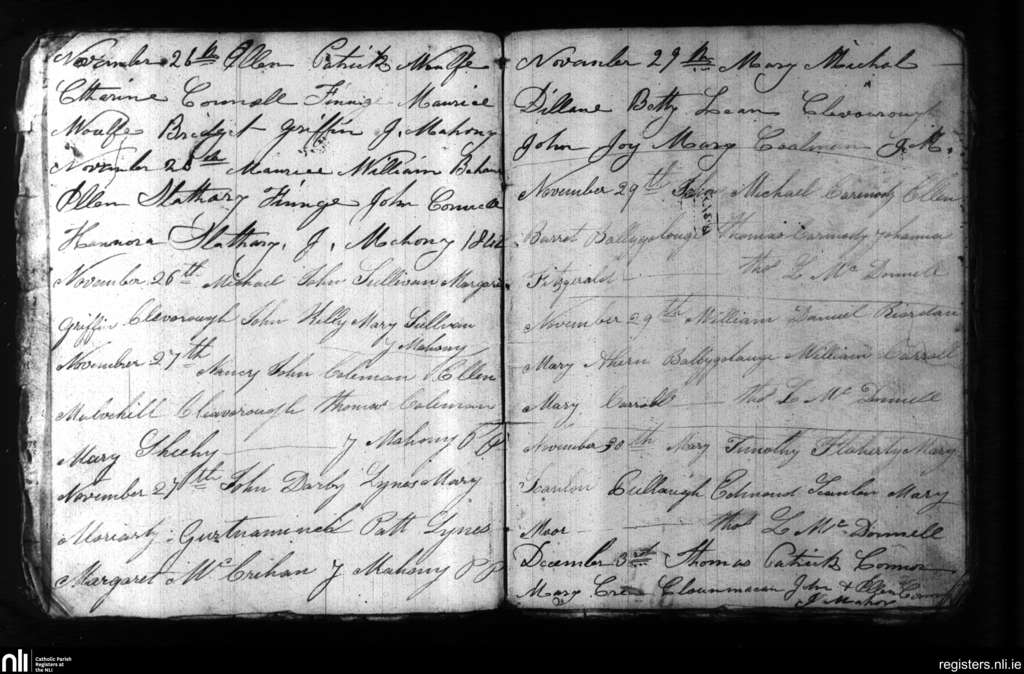 November 26th Ellen Patrick Woulfe
Catharine Connell Finnige Maurice
Woulfe Bridget Griffin J. Mahony
November 28th Maurice William Behane
Ellen Slathary Finnge John Connell
Hannora Slathary. J. Mahony
November 26th Michael John Sullivan Margaret
Griffin Clevorough John Kelly Mary Sullivan
J Mahony
November 27th Nancy John Coleman Ellen
Mulvehill Cleavorough Thomas Coleman
Mary Sheehy J Mahony P P
November 27th John Darby Lynes Mary
Moriarty Patt Lynes
Margaret McCrihan J Mahony P P
November 29th Mary Michal
Dillane Betty Lean Clevorrough
John Joy Mary Coalmen J.M.
November 29th John Michael Carmody Ellen
Barret Ballygologue Thomas Carmody Johanna
Fitzgerald Thos L McDonnell
November 29th William Daniel Riordan
Mary Ahern Ballygologue William Carroll
Mary Carroll Thos L McDonnell
November 30th Mary Timothy Flaherty Mary
Scanlon Edmond Scanlon Mary
Moor Thos L McDonnell
December 3rd Thomas Patrick Connor
Mary Cre Clounmacon John & Ellen Connor
J Mahony
nli Catholic Parish
Registers at
the NLI
registers.nli.ie